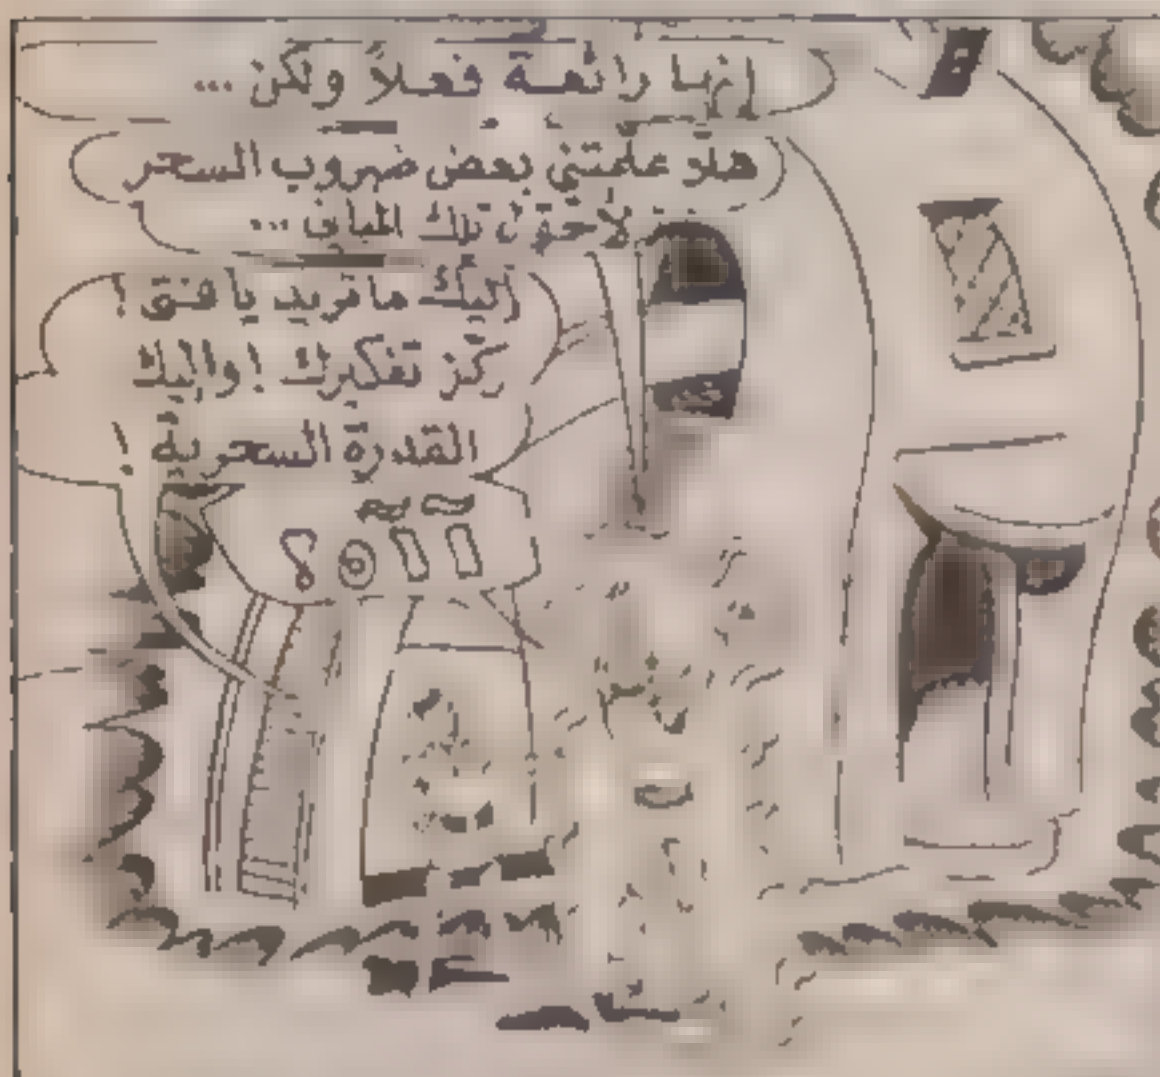 إنها رائعة فعلاً ولكن ...
هلاّ علمتني بعض ضروب السحر
لأحوّل تلك المباني ...
إليك ما تريد يا فتى !
ركّز تفكيرك ! وإليك
القدرة السحرية !
آآه ؟